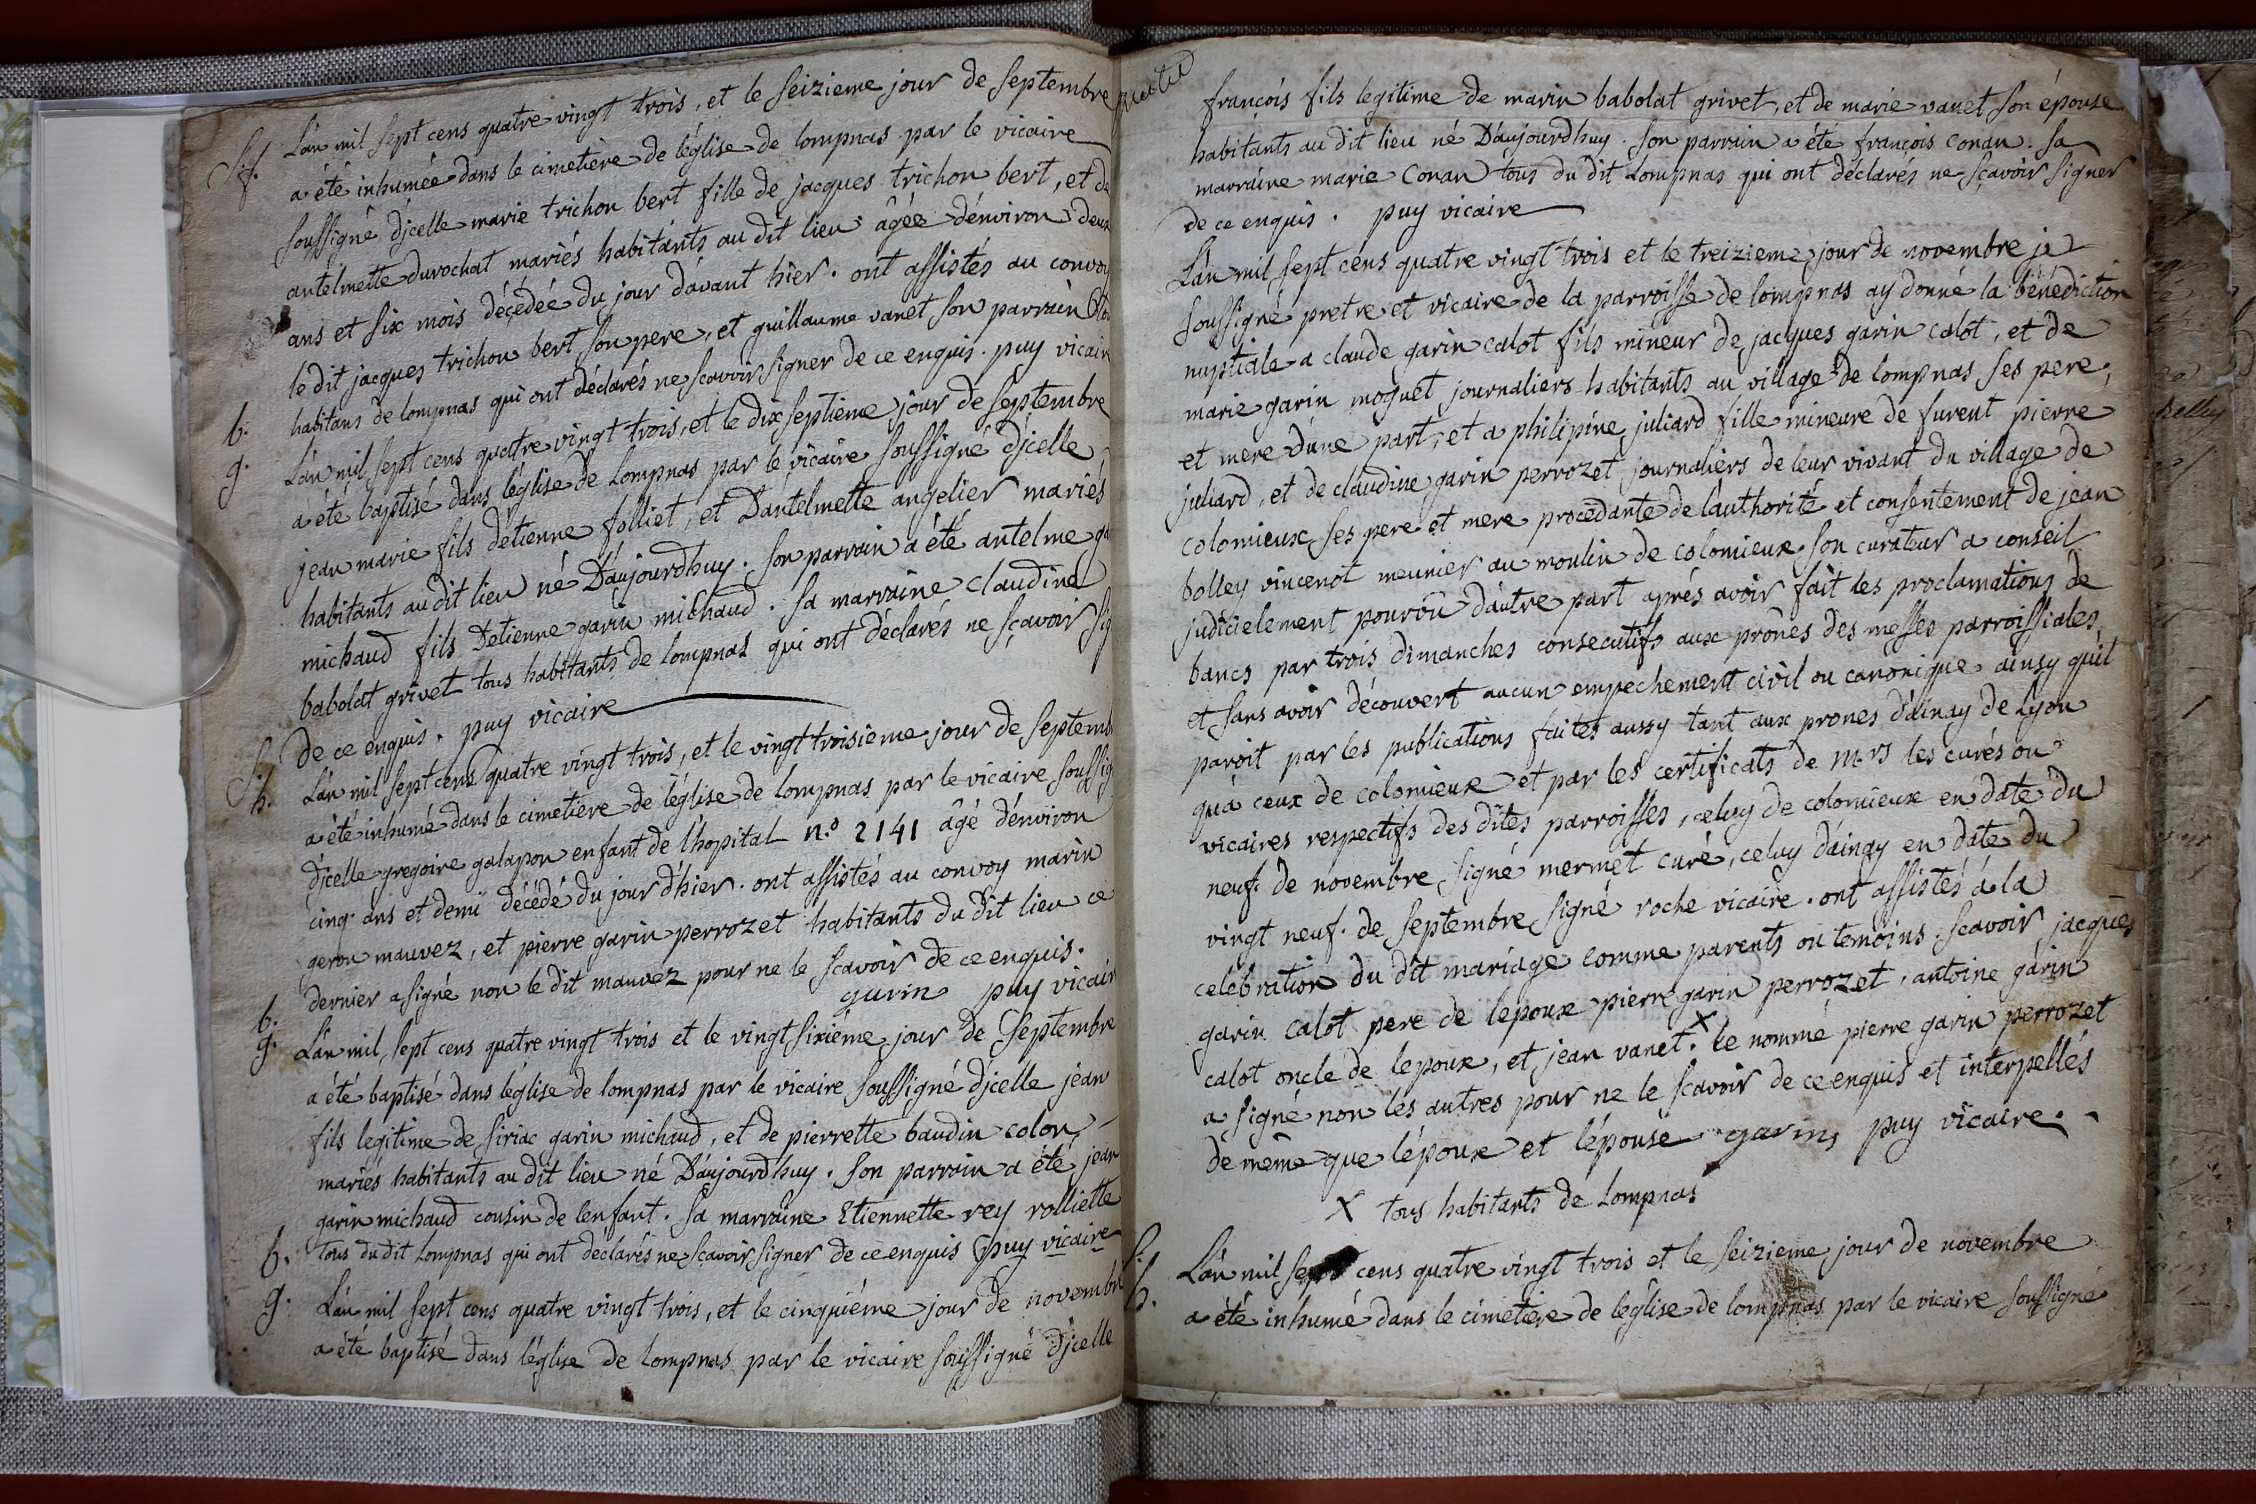 S. f.
L'an mil sept cens quatre vingt trois, et le seizieme jour de septembre
a été inhumée dans le cimetiere de l'église de lompnas par le vicaire
soussigné d'jcelle marie trichon bert fille de jacques trichon bert, et de
antelmette durochat mariés habitants au dit lieu âgée d'environ deux
ans et six mois décedée du jour d'avant hier. ont assistés au convoy
le dit jacques trichon bert son pere, et guillaume vanet son parrain
habitans de lompnas qui ont déclarés ne scavoir signer de ce enquis. puy vicair
b.
g.
L'an mil sept cens quatre vingt trois, et le dix septième jour de septembre
a été baptisé dans l'église de lompnas par le vicaire soussigné d'jcelle
jean marie fils d'etienne folliet, et D'antelmette angelier mariés
habitants au dit lieu né D'aujourdhuy. son parrain a été antelme ga
michaud fils D'etienne garin michaud. sa marraine claudine
babolat grivet tous habitants de lompnas qui ont déclarés ne sçavoir sig
de ce enquis. puy vicaire
S.
h.
L'an mil sept cens quatre vingt trois, et le vingt troisieme jour de septemb
a été inhumé dans le cimetiere de l'église de lompnas par le vicaire soussig
d'jcelle gregoire galapon enfant de l'hopital n.o 2141 âgé d'environ
cinq ans et demi décédé du jour d'hier. ont assistés au convoy marin
geron mauvez, et pierre garin perrozet habitants du dit lieu ce
dernier a signé non le dit mauvez pour ne le scavoir de ce enquis.
garin puy vicair
b.
g.
L'an mil sept cens quatre vingt trois et le vingt sixième jour de septembre
a été baptisé dans l'église de lompnas par le vicaire soussigné d'jcelle jean
fils legitime de siriac garin michaud, et de pierrette baudin colon
mariés habitants au dit lieu né D'aujourd'huy. son parrain a été jean
garin michaud cousin de lenfant. sa marraine Etiennette rey rolliette
tous du dit lompnas qui ont declarés ne scavoir signer de ce enquis puy vicaire
b.
g.
L'an mil sept cens quatre vingt trois, et le cinquiéme jour de novembr
a été baptisé dans l'église de lompnas par le vicaire soussigné d'jcelle
françois fils legitime de marin babolat grivet, et de marie vanet son épouse
habitants au dit lieu né D'aujourdhuy. son parrain a été françois conan. sa
marraine marie conan tous du dit lompnas qui ont déclarés ne sçavoir signer
de ce enquis. puy vicaire
L'an mil sept cens quatre vingt trois et le treizieme jour de novembre je
soussigné pretre et vicaire de la parroisse de lompnas ay donné la bénédiction
nuptiale a claude garin calot fils mineur de jacques garin calot, et de
marie garin moguet journaliers habitants au village de lompnas ses pere,
et mere d'une part, et a philipine juliard fille mineure de furent pierre
juliard, et de claudine garin perrozet journaliers de leur vivant du village de
colomieux ses pere et mere procedante de l'authorité et consentement de jean
bolley vincenot meunier au moulin de colomieux son curateur a conseil
judicielement pourvû d'autre part aprés avoir fait les proclamations de
bancs par trois dimanches consecutifs aux prones des messes parroissiales,
et sans avoir découvert aucun empechement civil ou canonique ainsy qu'il
paroit par les publications faites aussy tant aux prones d'ainay de lyon
qu'a ceux de colomieux et par les certificats de m.rs les curés ou
vicaires respectifs des dites parroisses, celuy de colomieux en date du
neuf. de novembre signé mermet curé, celuy d'ainay en date du
vingt neuf. de septembre signé roche vicaire. ont assistés á la
celebration du dit mariage comme parents ou temoins scavoir jacques
garin calot pere de lepoux pierre garin perrozet, antoine garin
calot oncle de lepoux, et jean vanet. X le nommé pierre garin perrozet
a signé non les autres pour ne le scavoir de ce enquis et interpellés
de même que l'époux et l'épouse garin, puy vicaire.
X tous habitants de lompnas
S.
h.
L'an mil sept cens quatre vingt trois et le seizieme jour de novembre
a été inhumé dans le cimetiere de leglise de lompnas par le vicaire soussigné